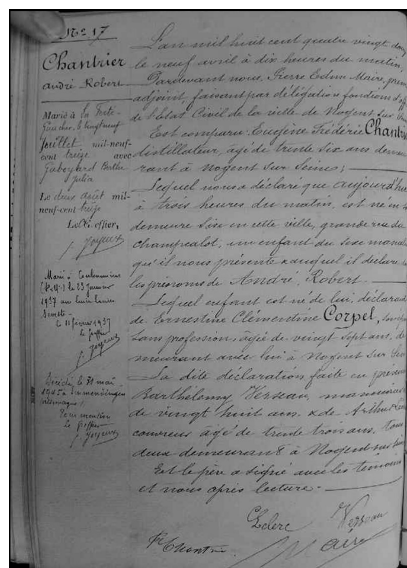 N° 17
Chantrier
André Robert
Marié à la Ferté-
Gaucher, le vingt neuf
Juillet mil neuf
cent treize avec
Berthe
Julia
Le dix août mil
neuf cent treize
Le Greffier,
J. Joyeux
Marié à Coulommiers
(S.&M.) le 23 Janvier
1937 en
le 11 février 1937
Le Greffier
J. Joyeux
Décédé le 31 mai
1945 à
Allemagne
Pour mention
Le Greffier
J. Joyeux
L'an mil huit cent quatre vingt
le neuf avril à dix heures du matin,
Pardevant nous, Pierre Edme Maire, premier
adjoint, faisant par délégation fonctions d'
de l'Etat Civil de la ville de Nogent sur
Est comparu Eugène Frédéric Chantrier
distillateur, âgé de trente six ans, demeu-
rant à Nogent sur Seine;
Lequel nous a déclaré que aujourd'hui
à trois heures du matin, est né en sa
demeure sise en cette ville, grande rue du
un enfant du sexe masculin
qu'il nous présente & auquel il déclare
les prénoms de André, Robert.
Lequel enfant est né de lui, déclarant
de Ernestine Clémentine Corpel,
sans profession, âgée de vingt sept ans, de-
meurant avec lui à Nogent sur Seine
La dite déclaration faite en présence
Barthélemy Verseau,
de vingt huit ans, & de Arthur
couvreur âgé de trente trois ans, tous
deux demeurant à Nogent sur
Et le père a signé avec les témoins
et nous après lecture.
Leclerc
Verseau
Maire